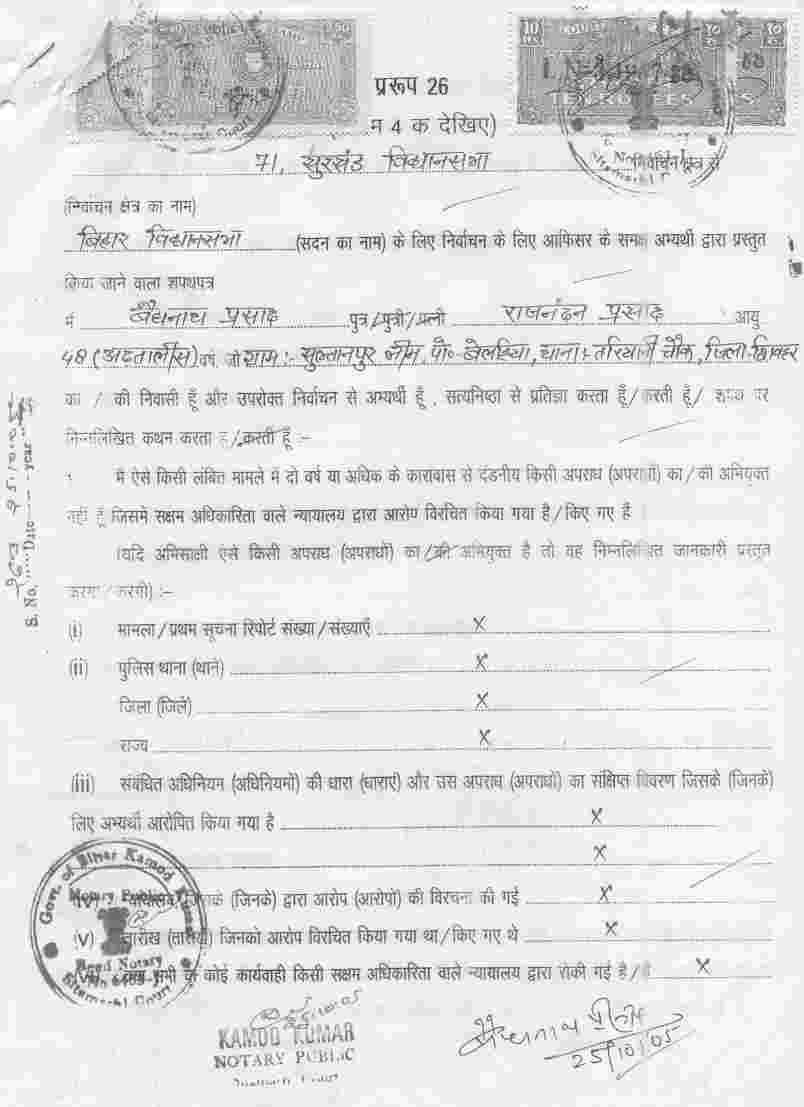 प्ररूप 26
म 4 क देखिए)
71, सुरसंड विधानसभा
(निर्वाचन क्षेत्र का नाम)
बिहार विधानसभा (सदन का नाम) के लिए निर्वाचन के लिए आफिसर के समक्ष अभ्यर्थी द्वारा प्रस्तुत
किया जाने वाला शपथपत्र
मैं बैधनाथ प्रसाद पुत्र/पुत्री/पत्नी राजनंदन प्रसाद आयु
48 (अड़तालीस) वर्ष, जो ग्राम:- सुल्तानपुर भीम, पो० बेलहिया, थाना: तरियानी चौक, जिला शिवहर
का / की निवासी हूँ और उपरोक्त निर्वाचन से अभ्यर्थी हूँ, सत्यनिष्ठा से प्रतिज्ञा करता हूँ/करती हूँ/ शपथ पर
निम्नलिखित कथन करता हूँ/करती हूँ :-
मैं ऐसे किसी लंबित मामले में दो वर्ष या अधिक के कारावास से दंडनीय किसी अपराध (अपराधों) का/की अभियुक्त
नहीं हूँ जिसमें सक्षम अधिकारिता वाले न्यायालय द्वारा आरोप विरचित किया गया है/किए गए है
(यदि अभिसाक्षी ऐसे किसी अपराध (अपराधों) का/की अभियुक्त है तो वह निम्नलिखित जानकारी प्रस्तुत
करेगा/करेगी) :-
(i) मामला/प्रथम सूचना रिपोर्ट संख्या/संख्याएँ X
(ii) पुलिस थाना (थाने) X
जिला (जिले) X
राज्य X
(iii) संबंधित अधिनियम (अधिनियमों) की धारा (धाराएं) और उस अपराध (अपराधों) का संक्षिप्त विवरण जिसके (जिनके)
लिए अभ्यर्थी आरोपित किया गया है X
X
(iv) जिनके (जिनके) द्वारा आरोप (आरोपों) की विरचना की गई X
(V) तारीख (तारीखें) जिनको आरोप विरचित किया गया था/किए गए थे X
कोई कार्यवाही किसी सक्षम अधिकारिता वाले न्यायालय द्वारा रोकी गई है/हैं X
S. No. Date year
Govt. of Bihar Kamod Kumar
Notary Public
Regd Notary
Sitamarhi Court
25.10.05
KAMOD KUMAR
NOTARY PUBLIC
Sitamarhi Court
25/10/05